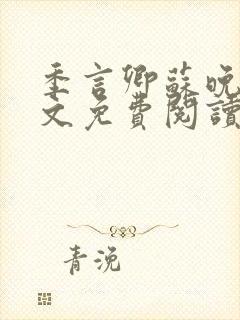 季言卿蘇晚
文免費閱讀
青浼